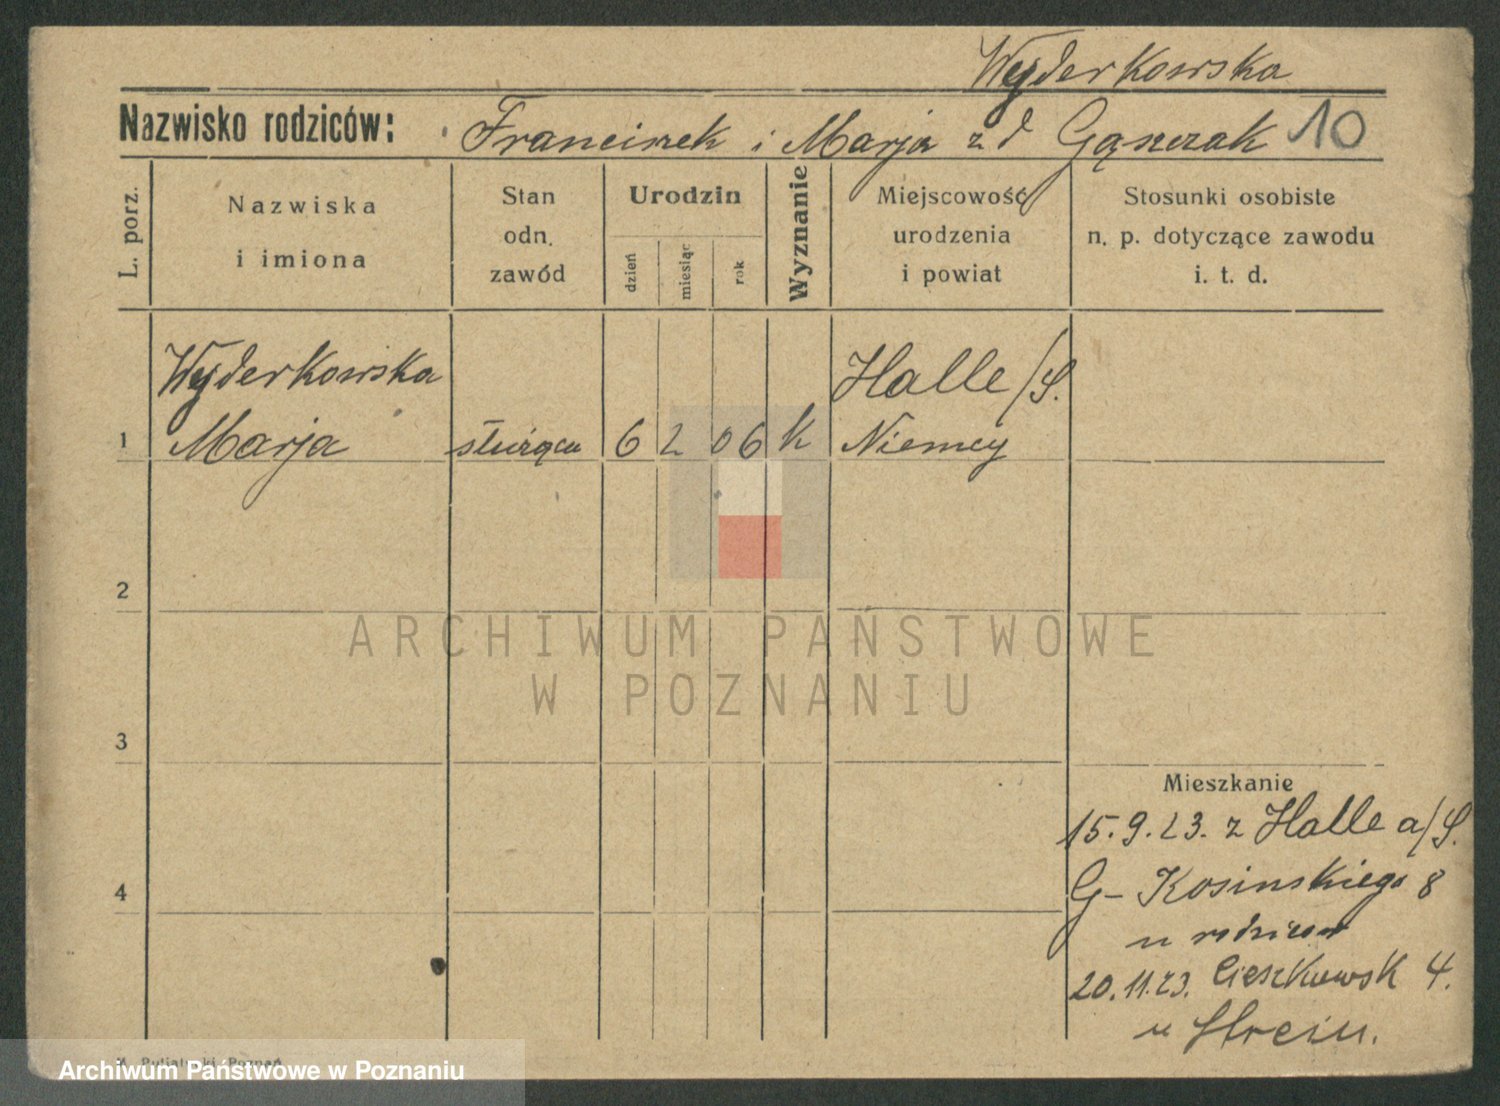 Wejderkowska
Nazwisko rodziców: Franciszek i Marja z d Gąszczak 10
L. porz.
Nazwiska
i imiona
Stan
odn.
zawód
Urodzin
dzień
miesiąc
rok
Wyznanie
Miejscowość
urodzenia
i powiat
Stosunki osobiste
n. p. dotyczące zawodu
i. t. d.
Wejderkowska Halle/S.
1 Marja służąca 6 2 06 k Niemcy
2
ARCHIWUM PAŃSTWOWE
W POZNANIU
3
Mieszkanie
15.9.23. z Halle a/S.
4
G- Kosinskiego 8
u rodziców
20.11.23. Cieszkowsk 4.
u
Poznań
Archiwum Państwowe w Poznaniu